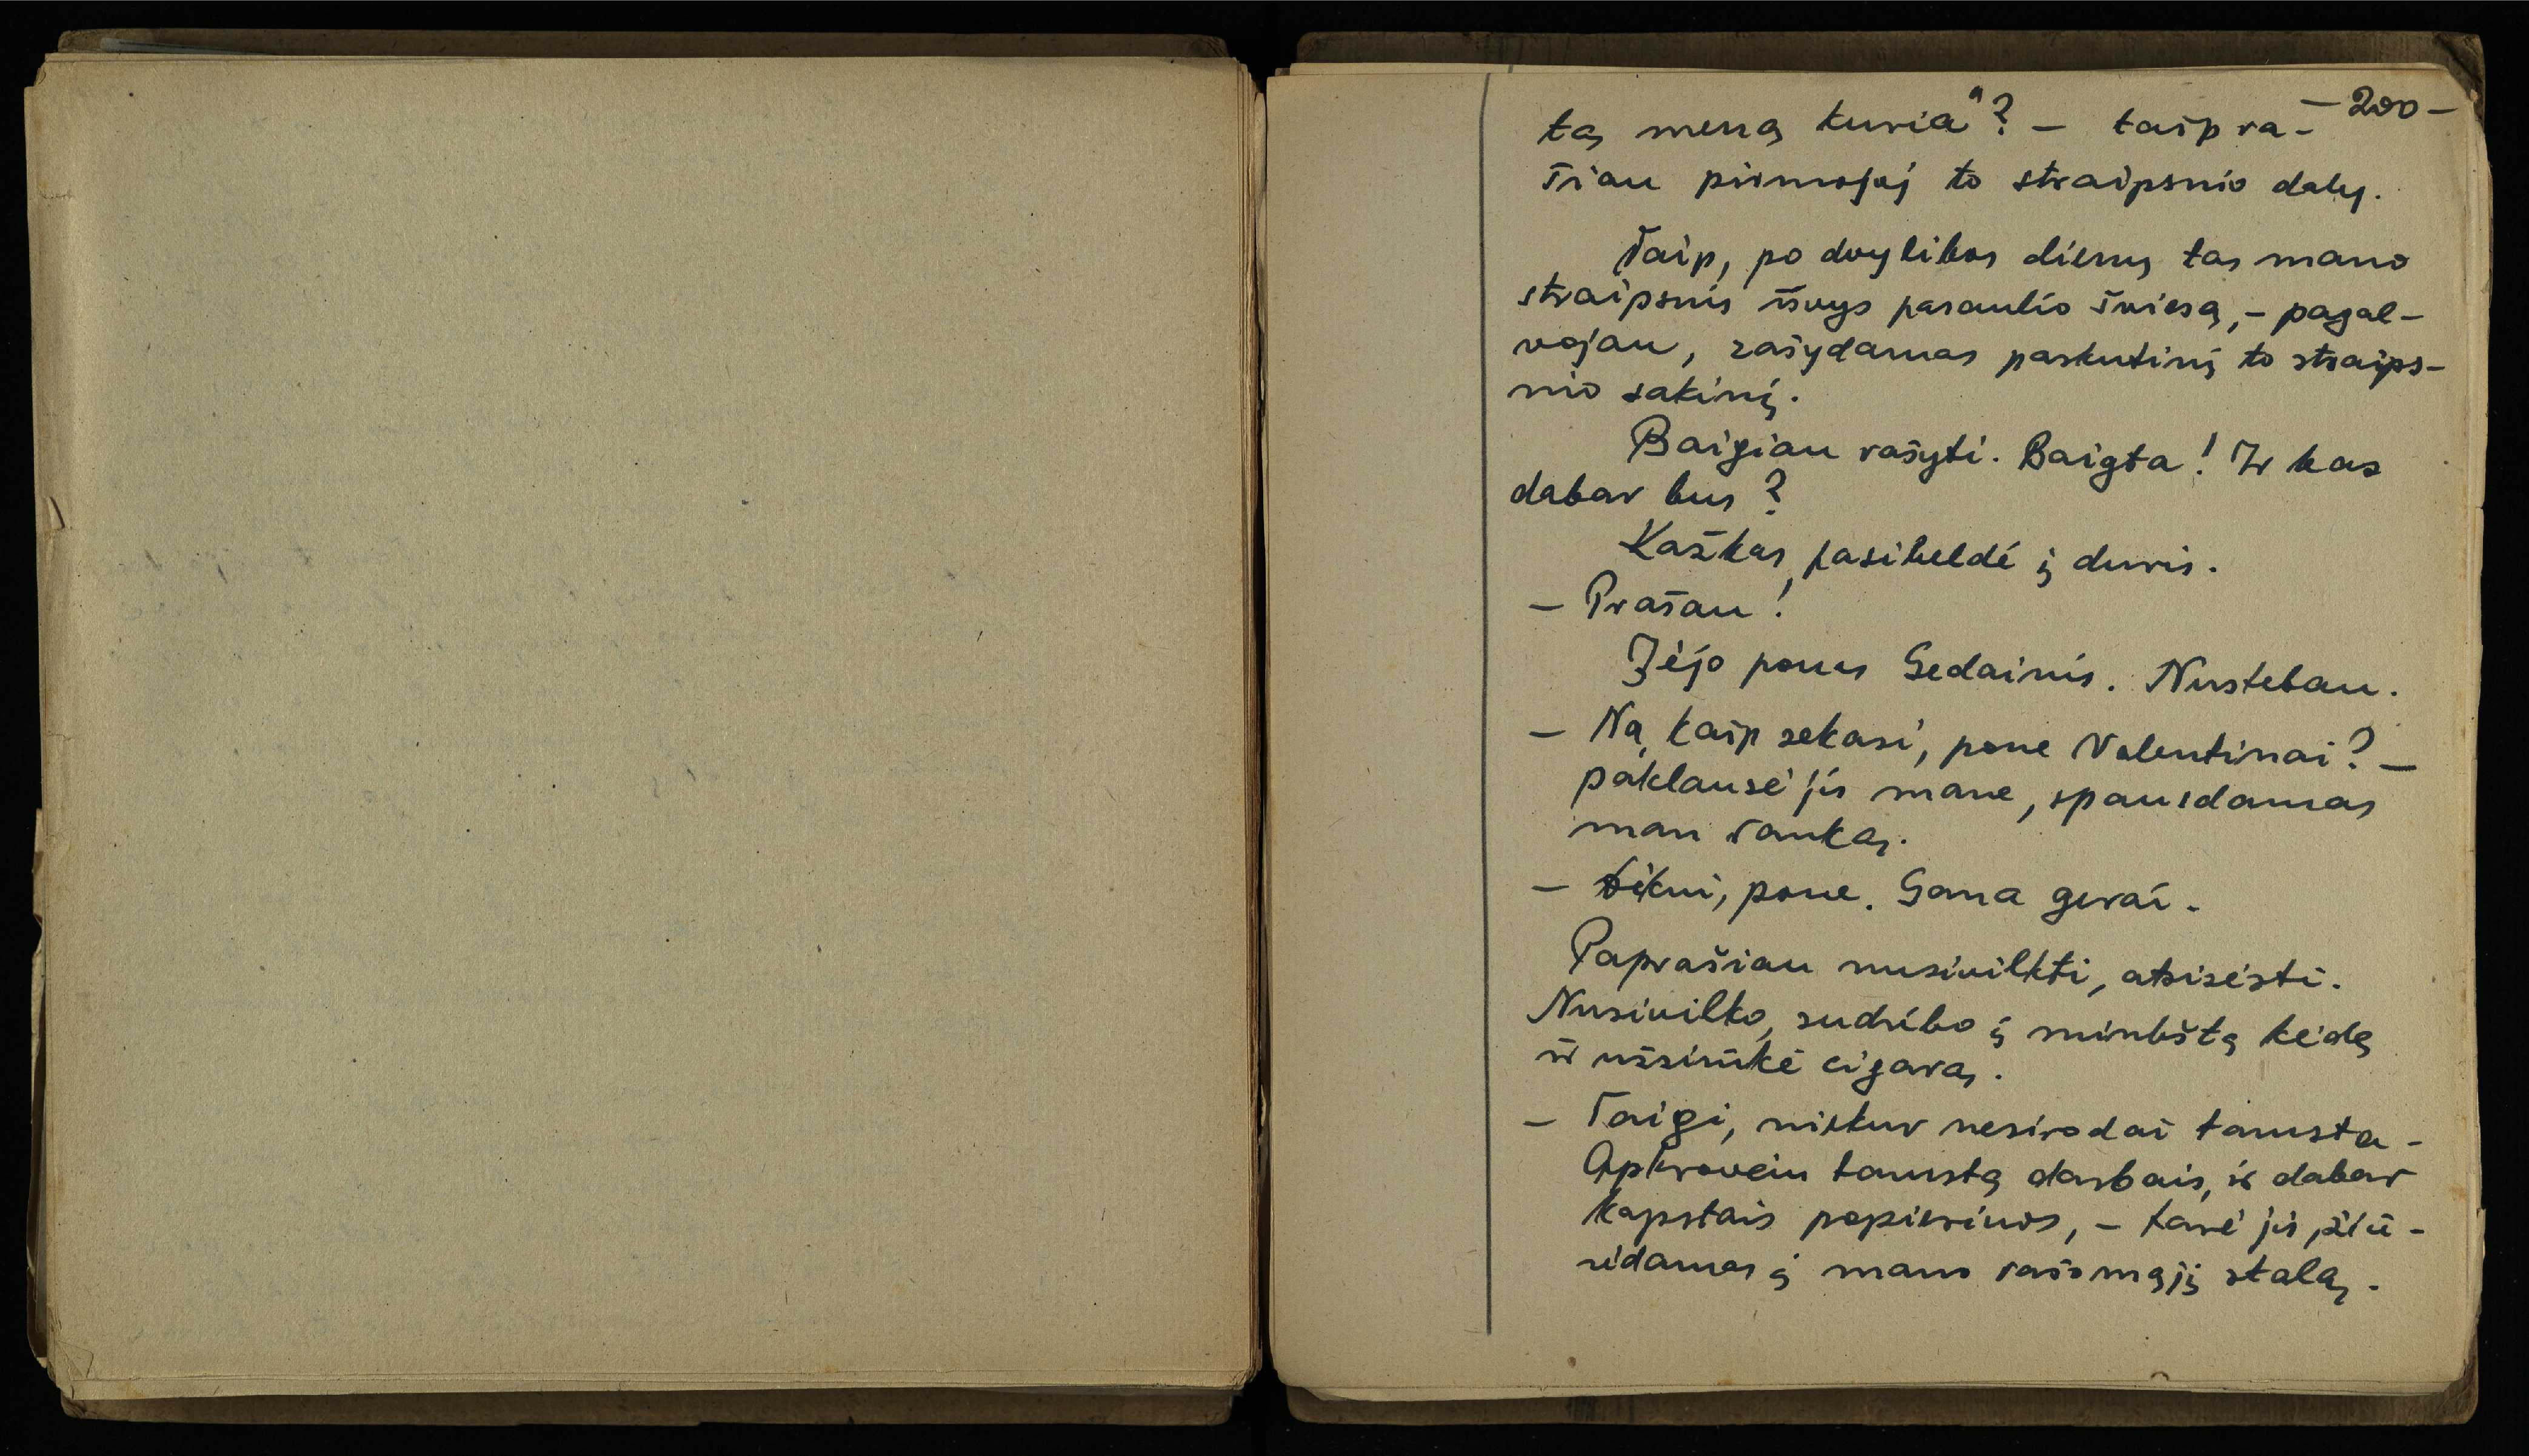 – 200 –
tą meną kuria"? – taip ra-
šiau pirmojoj to straipsnio daly.
Taip, po dvylikos dienų tas mano
straipsnis išvys pasaulio šviesą, – pagal-
vojau, rašydamas paskutinį to straips-
nio sakinį.
Baigiau rašyti. Baigta! Ir kas
dabar bus?
Kažkas pasibeldė į duris.
– Prašau!
Įėjo ponas Gedainis. Nustebau.
– Na, kaip sekasi, pone Valentinai? –
paklausė jis mane, spausdamas
man ranką.
– Dėkui, pone. Gana gerai.
Paprašiau nusivilkti, atsisėsti.
Nusivilko, sudribo į minkštą kėdę
ir užsirūkė cigarą.
– Taigi, niekur nesirodai tamsta.
Apkroviau tamstą darbais, ir dabar
kapstais popieriuos, – tarė jis, žiū-
rėdamas į mano rašomąjį stalą.